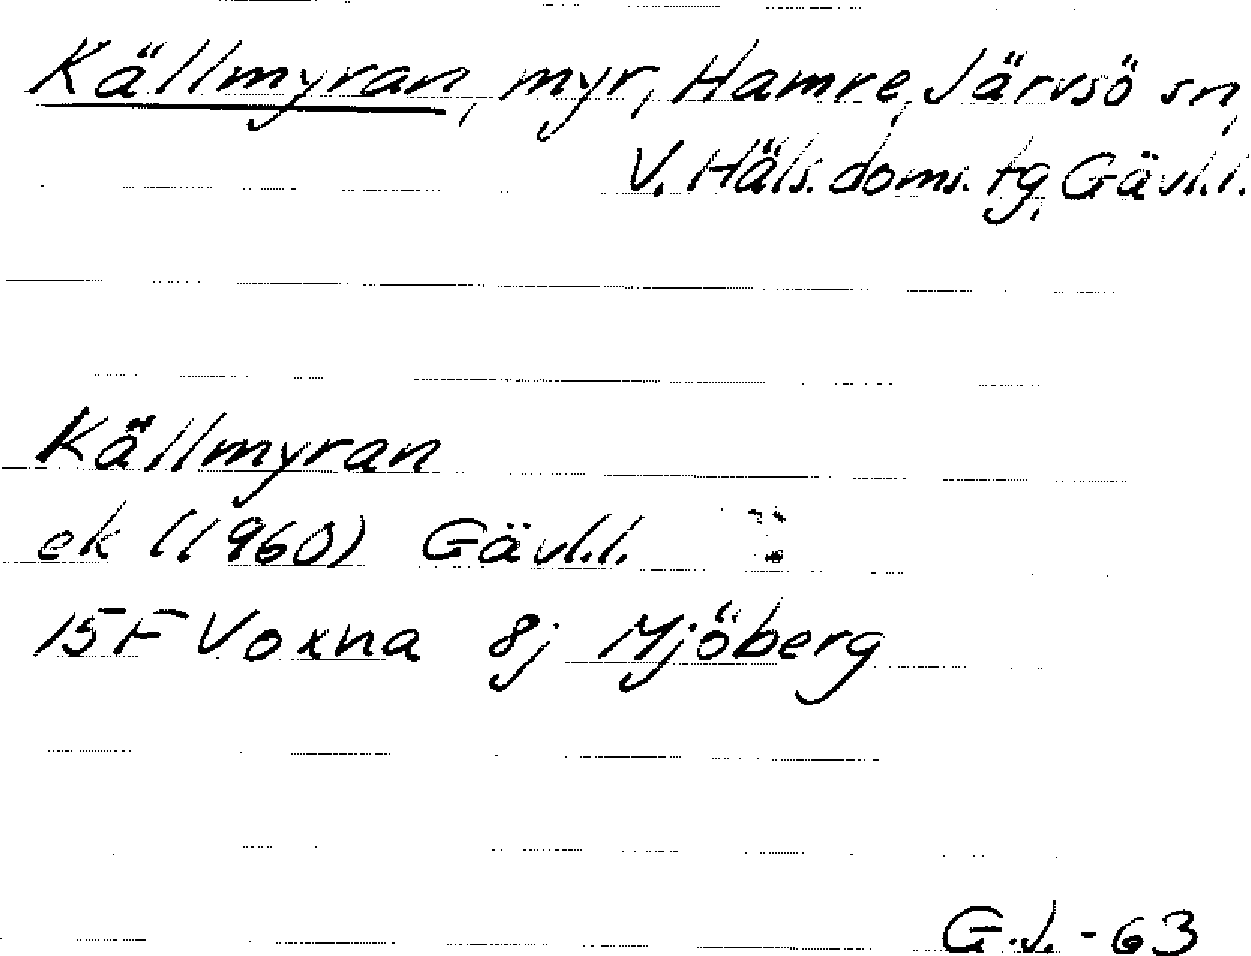 Källmyran, myr, Hamre, Järvsö sn,
V. Häls. doms. tg, Gävl.l.
Källmyran
ek (1960) Gävl.l.
15F Voxna 8j Mjöberg
G.J. - 63